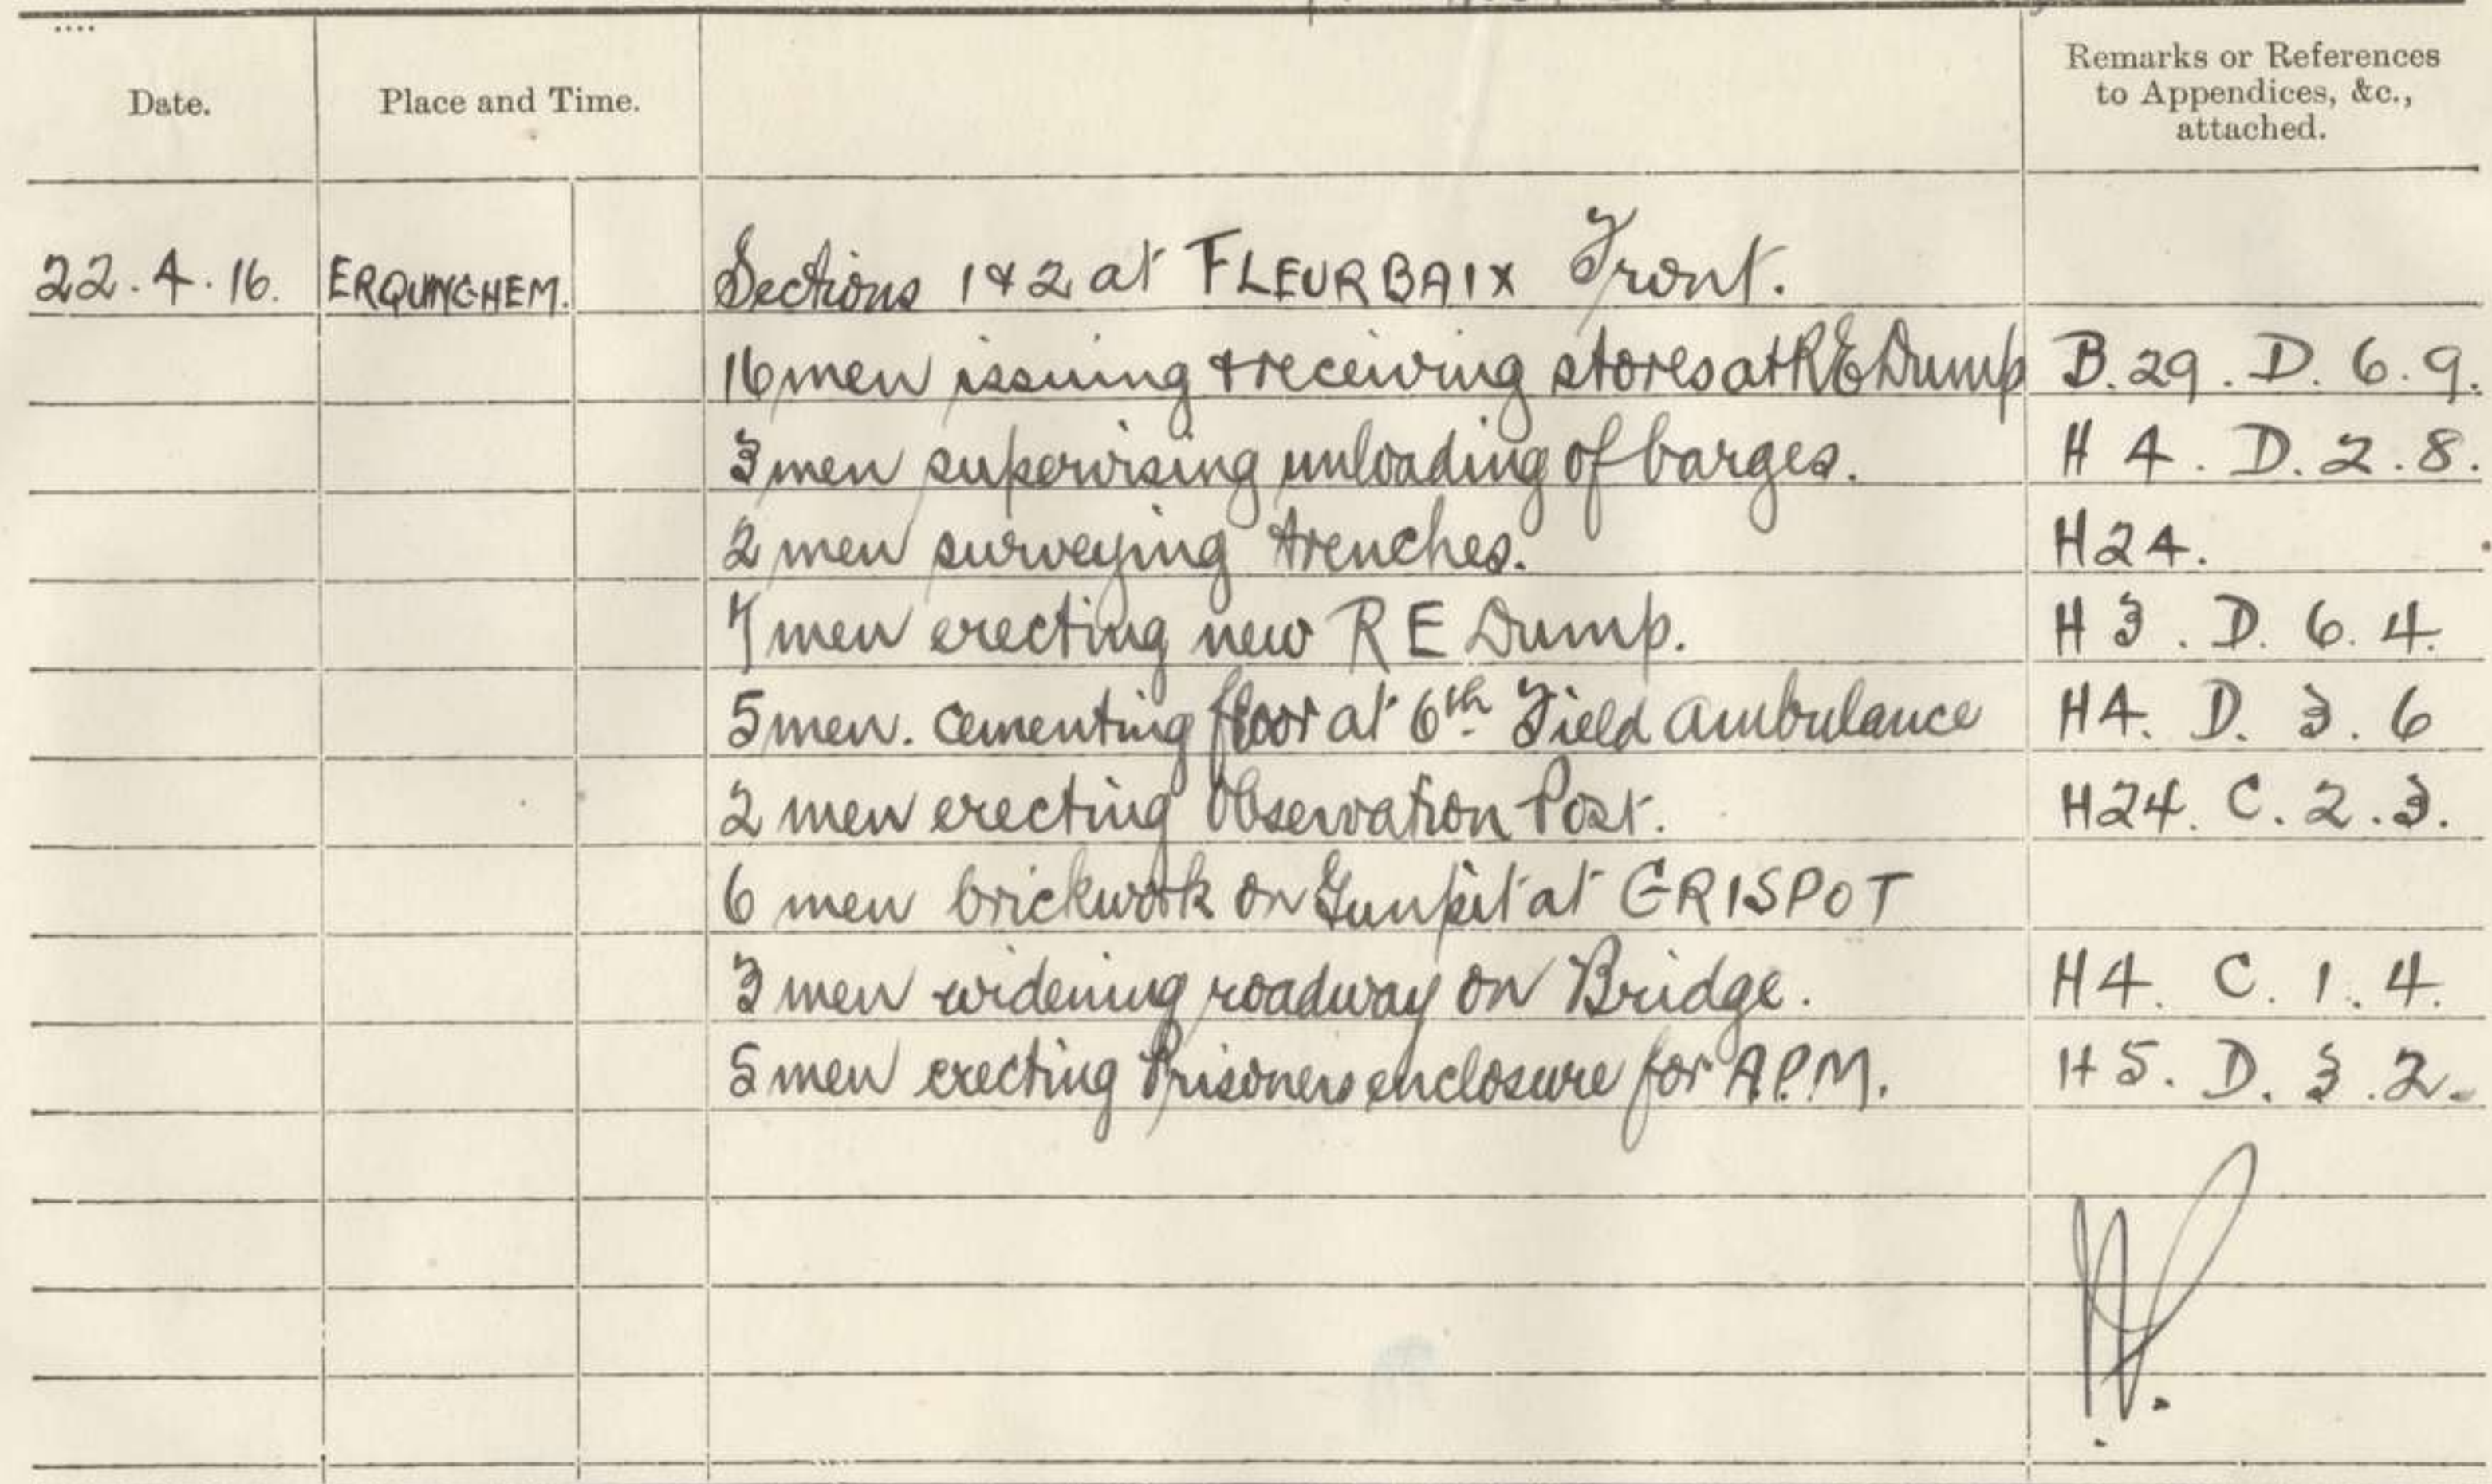 Date.
Place and Time.
Remarks or References
to Appendices, &c.,
attached.
22.4.16. ERQUINGHEM. Sections 1 & 2 at FLEURBAIX Front.
16 men issuing & receiving stores at R E Dump B.29.D.6.9.
3 men supervising unloading of barges. H 4.D.2.8.
2 men surveying trenches. H24.
7 men erecting new R E Dump. H 3.D.6.4.
5 men. cementing floor at 6th Field Ambulance H4.D.3.6
2 men erecting Observation Post. H24.C.2.3.
6 men brickwork on Gunpit at GRISPOT
3 men widening roadway on Bridge. H4.C.1.4.
5 men erecting Prisoners enclosure for A.P.M. H5.D.3.2.